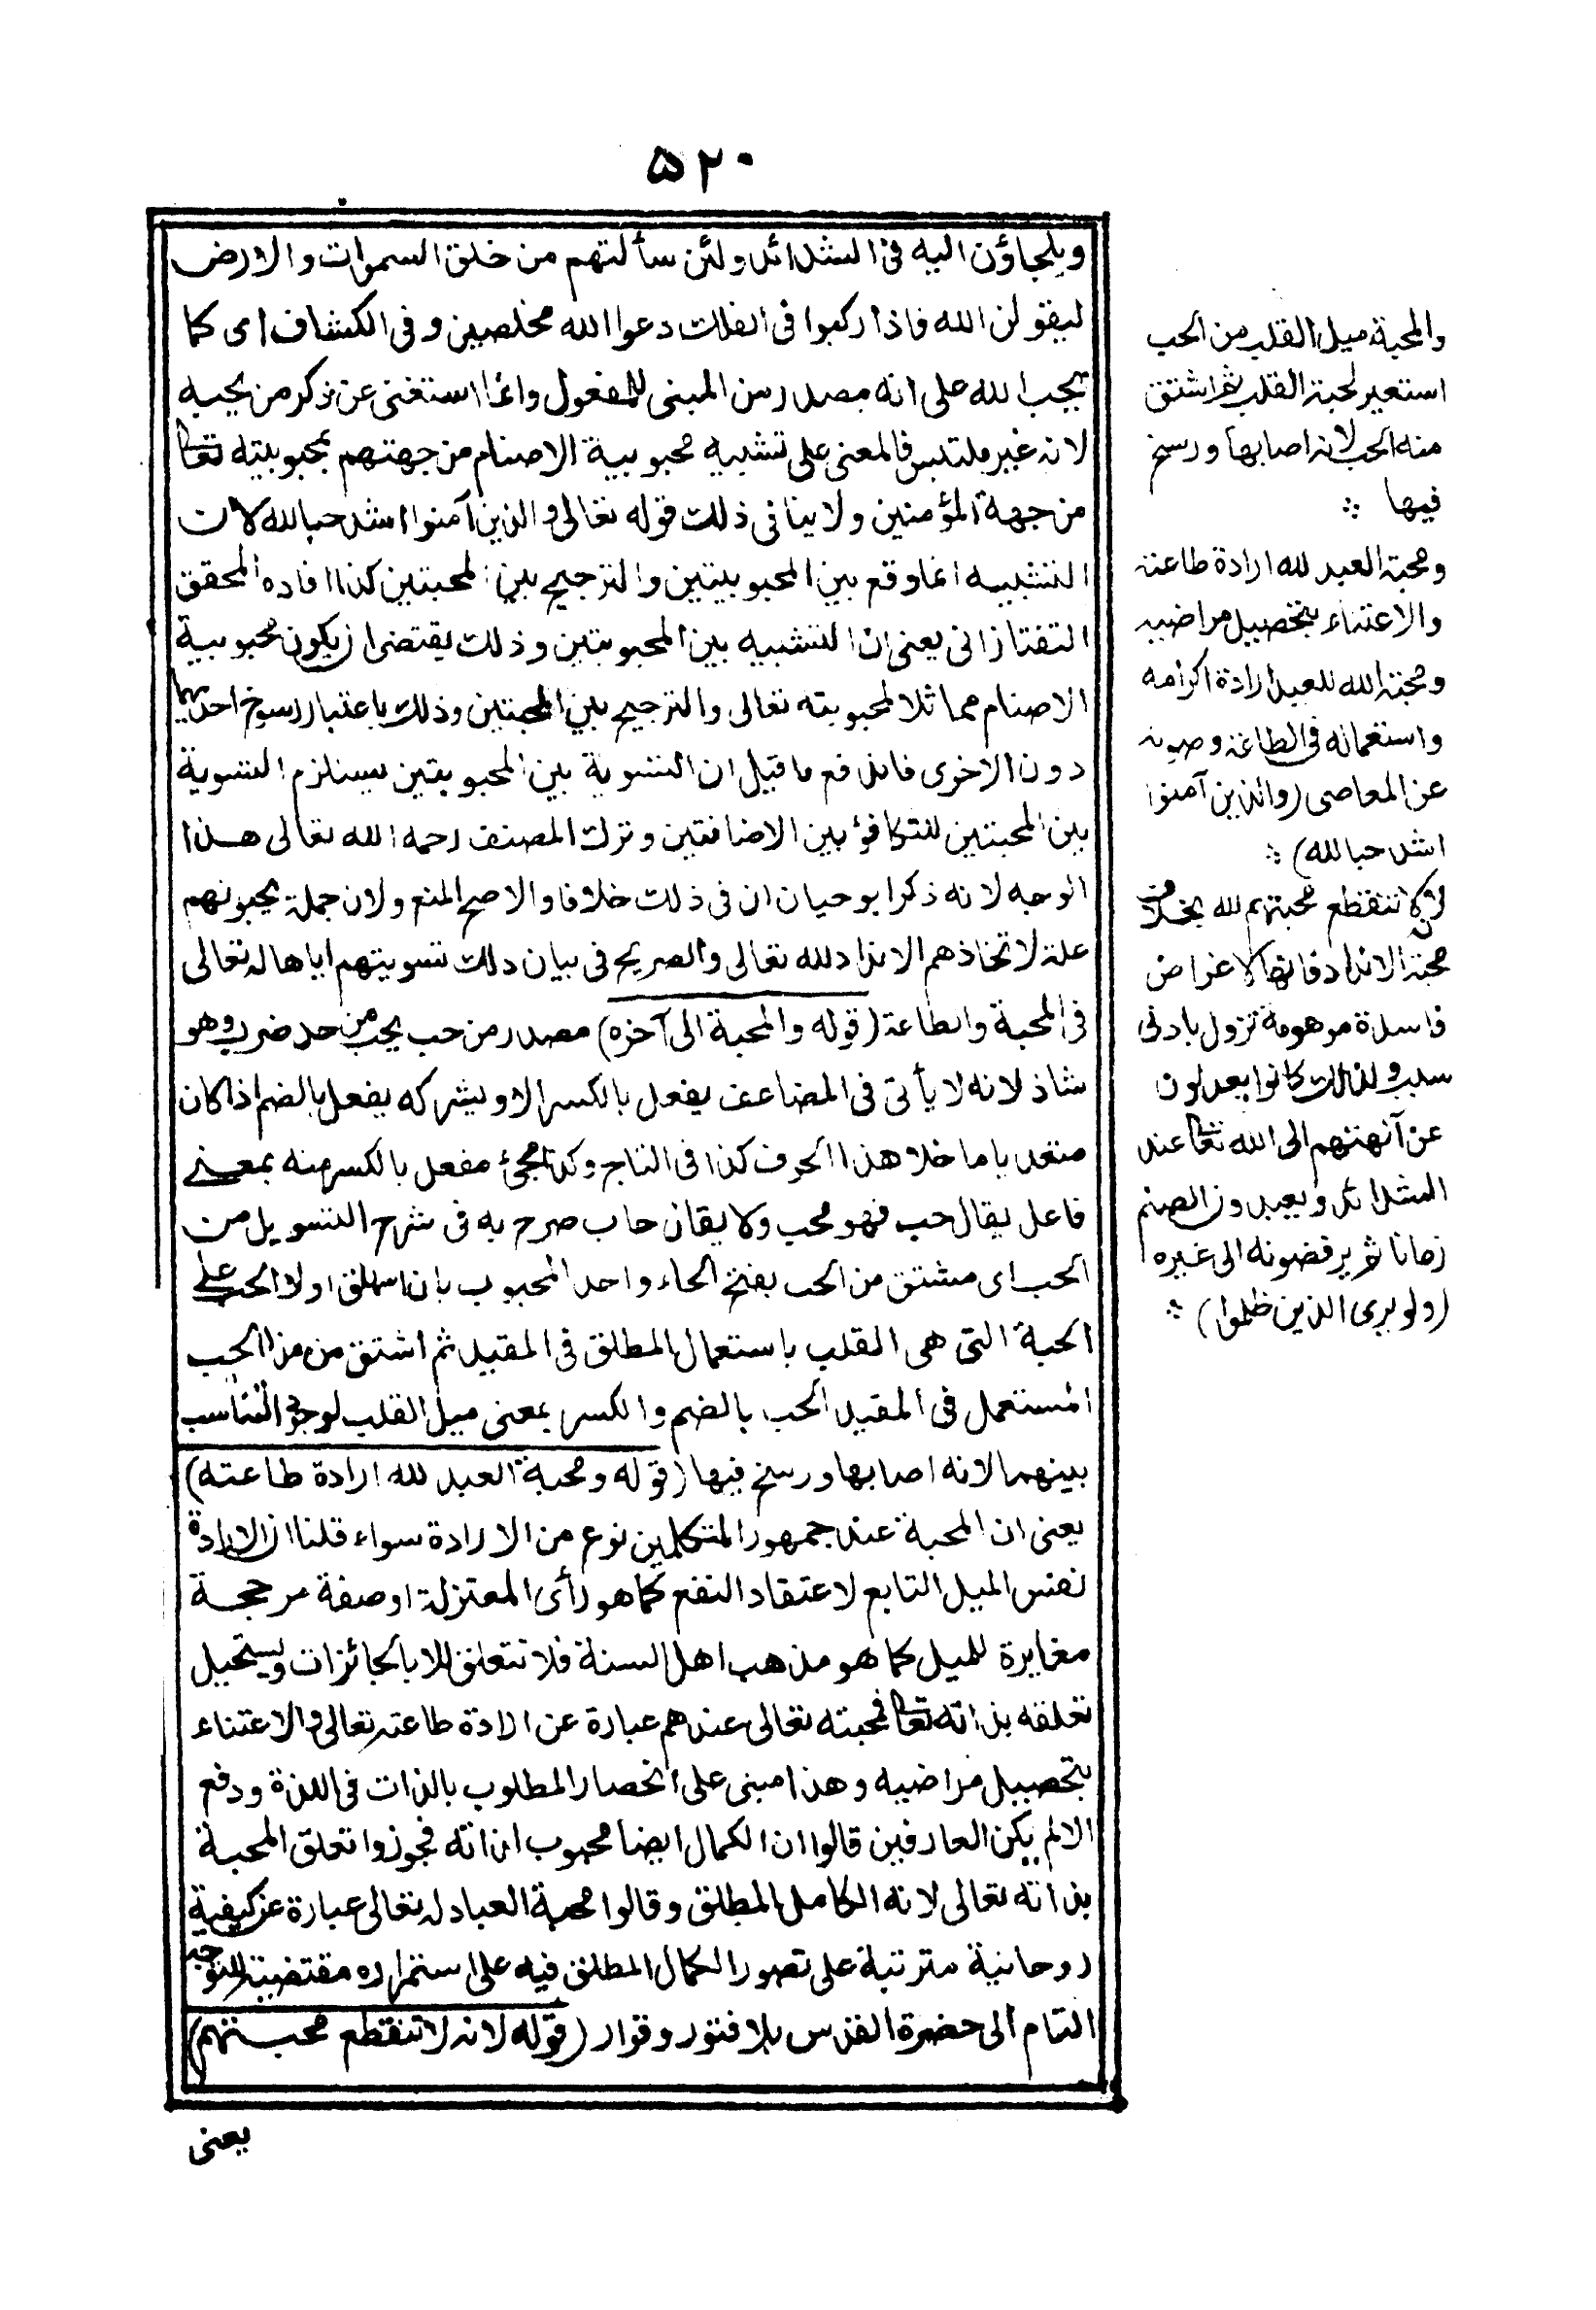 ٥٢٠
ويلجاؤن اليه فى الشدائد ولئن سألتهم من خلق السموات والارض
ليقولن الله فاذا ركبوا فى الفلك دعوا الله مخلصين وفى الكشاف اى كما
يحب الله على انه مصدر من المبنى للمفعول وانما استغنى عن ذكر من يحبه
لانه غير ملتبس فالمعنى على تشبيه محبوبية الاصنام من جهتهم بمحبوبيته تعا
من جهة المؤمنين ولا ينافى ذلك قوله تعالى والذين آمنوا اشد حبا لله لان
التشبيه انما وقع بين المحبوبيتين والترجيح بين المحبتين كذا افاده المحقق
التفتازانى يعنى ان التشبيه بين المحبوبتين وذلك يقتضى ان يكون محبوبية
الاصنام مماثلا لمحبوبيته تعالى والترجيح بين المحبتين وذلك باعتبار رسوخ احديهما
دون الاخرى فاندفع ما قيل ان التسوية بين المحبوبيتين يستلزم التسوية
بين المحبتين للتكافؤ بين الاضافتين وترك المصنف رحمه الله تعالى هذا
الوجه لانه ذكر ابو حيان ان فى ذلك خلافا والاصح المنع ولان جملة يحبونهم
علة لاتخاذهم الانداد لله تعالى والصريح فى بيان ذلك تسويتهم اياها له تعالى
فى المحبة والطاعة (قوله والمحبة الى آخره) مصدر من حب يحب من حد ضرب وهو
شاذ لانه لا يأتى فى المضاعف يفعل بالكسر الا ويشركه يفعل بالضم اذا كان
متعديا ما خلا هذا الحرف كذا فى التاج وكذا مجئ مفعل بالكسر منه بمعنى
فاعل يقال حب فهو محب ولا يقان حاب صرح به فى شرح التسويل من
الحب اى مشتق من الحب بفتح الحاء واحد المحبوب بان اطلق اولا الحب على
الحبة التى هى القلب باستعمال المطلق فى المقيد ثم اشتق من هذا الحب
المستعمل فى المقيد الحب بالضم والكسر بمعنى ميل القلب لوجود التناسب
بينهما لانه اصابها ورسخ فيها (قوله ومحبة العبد لله ارادة طاعته)
يعنى ان المحبة عند جمهور المتكلمين نوع من الارادة سواء قلنا ان الارادة
نفس الميل التابع لاعتقاد النفع كما هو رأى المعتزلة او صفة مرجحة
مغايرة للميل كما هو مذهب اهل السنة فلا تتعلق الا بالجائزات ويستحيل
تعلقه بذاته تعا فمحبته تعالى عندهم عبارة عن ارادة طاعته تعالى والاعتناء
بتحصيل مراضيه وهذا مبنى على انحصار المطلوب بالذات فى اللذة ودفع
الالم لكن العارفين قالوا ان الكمال ايضا محبوب لذاته فجوزوا تعلق المحبة
بذاته تعالى لانه الكامل المطلق وقالوا محبة العباد له تعالى عبارة عن كيفية
روحانية مترتبة على تصور الكمال المطلق فيه على استمراره مقتضية للتوجه
التام الى حضرة القدس بلا فتور وقرار (قوله لانه لا تنقطع محبتهم)
يعنى
والمحبة ميل القلب من الحب
استعير لحبة القلب ثم اشتق
منه الحب لانه اصابها ورسخ
فيها
ومحبة العبد لله ارادة طاعته
والاعتناء بتحصيل مراضيه
ومحبة الله للعبد ارادة اكرامه
واستعماله فى الطاعة وصونه
عن المعاصى (والذين آمنوا
اشد حبا لله)
لانه لا تنقطع محبتهم لله بخلاف
محبة الانداد فانها لاغراض
فاسدة موهومة تزول بادنى
سبب ولذلك كانوا يعدلون
عن آلهتهم الى الله تعا عند
الشدائد ويعبدون الصنم
زمانا ثم يرفضونه الى غيره
(ولو يرى الذين ظلموا)